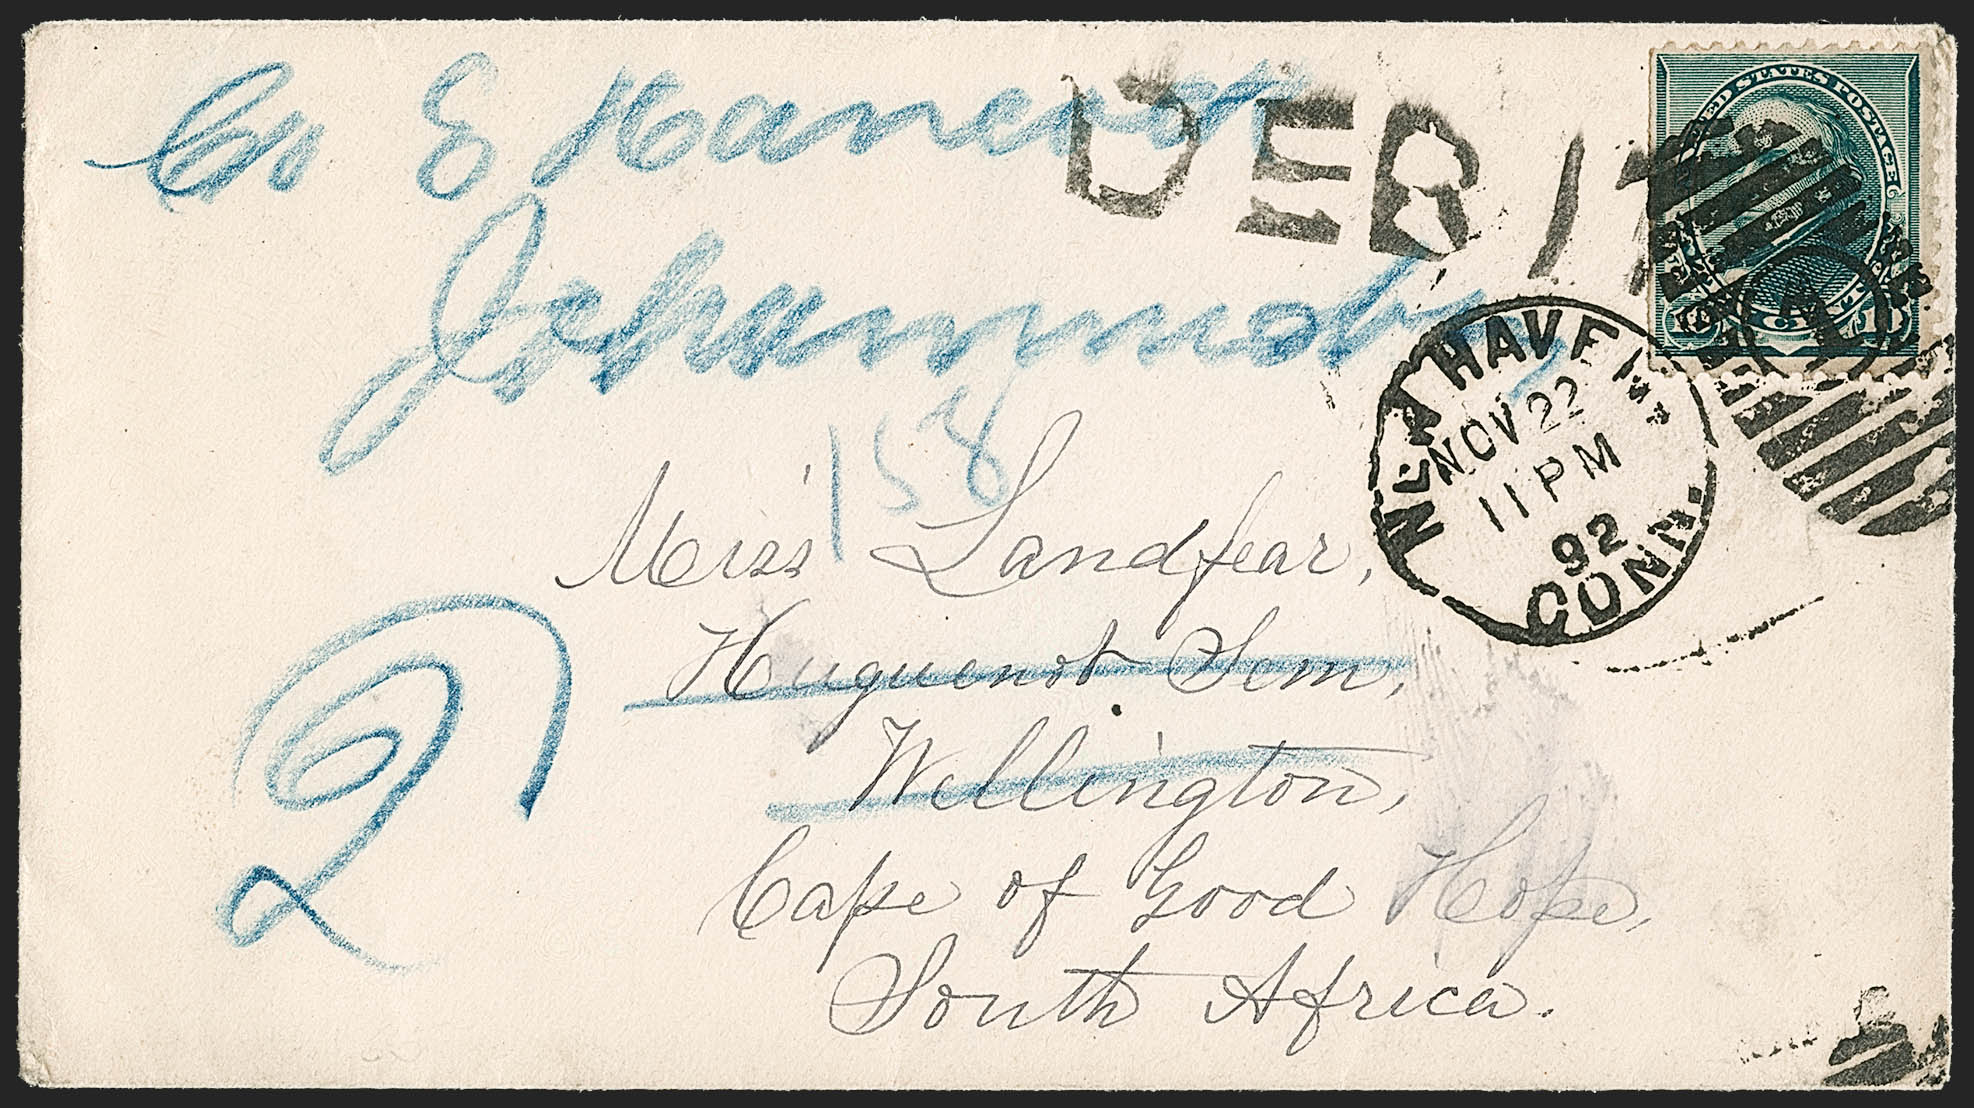 C/o E Hancock
Johannesb
DEB 17
UNITED STATES POSTAGE
NEW HAVEN
NOV 22
11 PM
92
CONN.
1
158
Miss Landfear,
Huguenot Sem,
Wellington,
Cape of Good Hope,
South Africa.
2